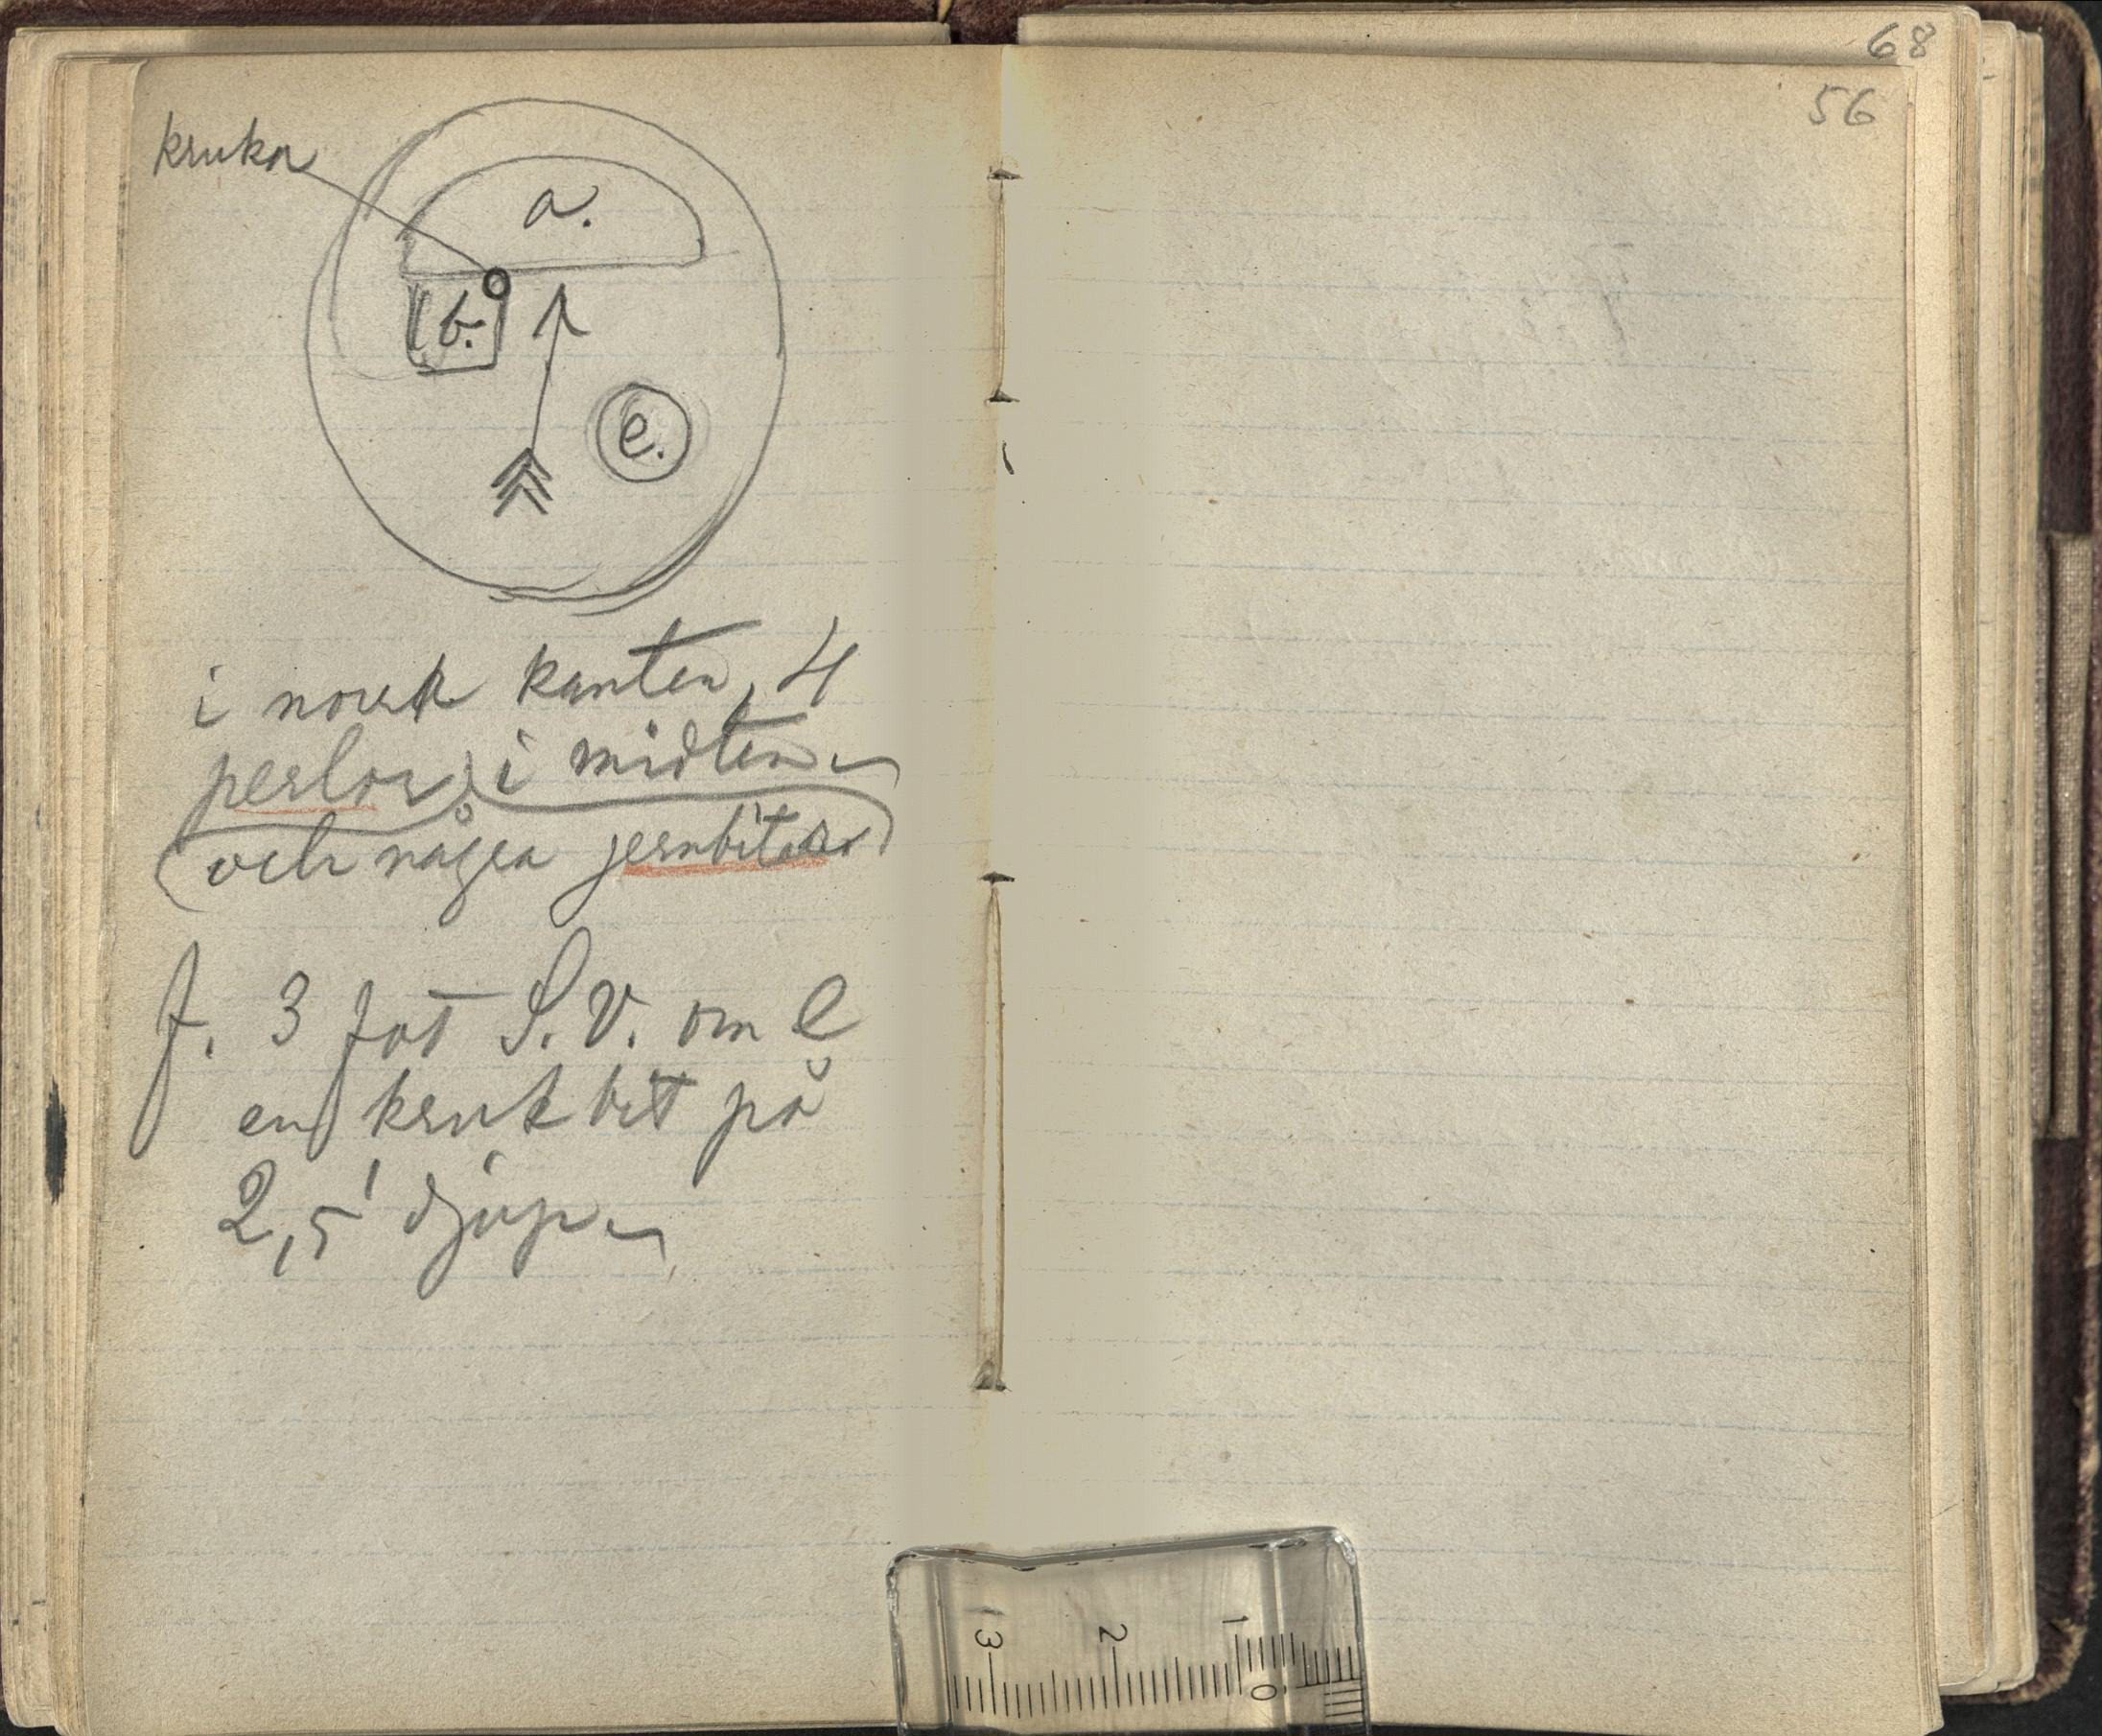 68
56
krukor
a.
b.
e.
i norra kanten, 4
perlor, i midten
och några jernbitar
f. 3 fot S.V. om e
en krukbit på
2,5' djup
3 2 1 0